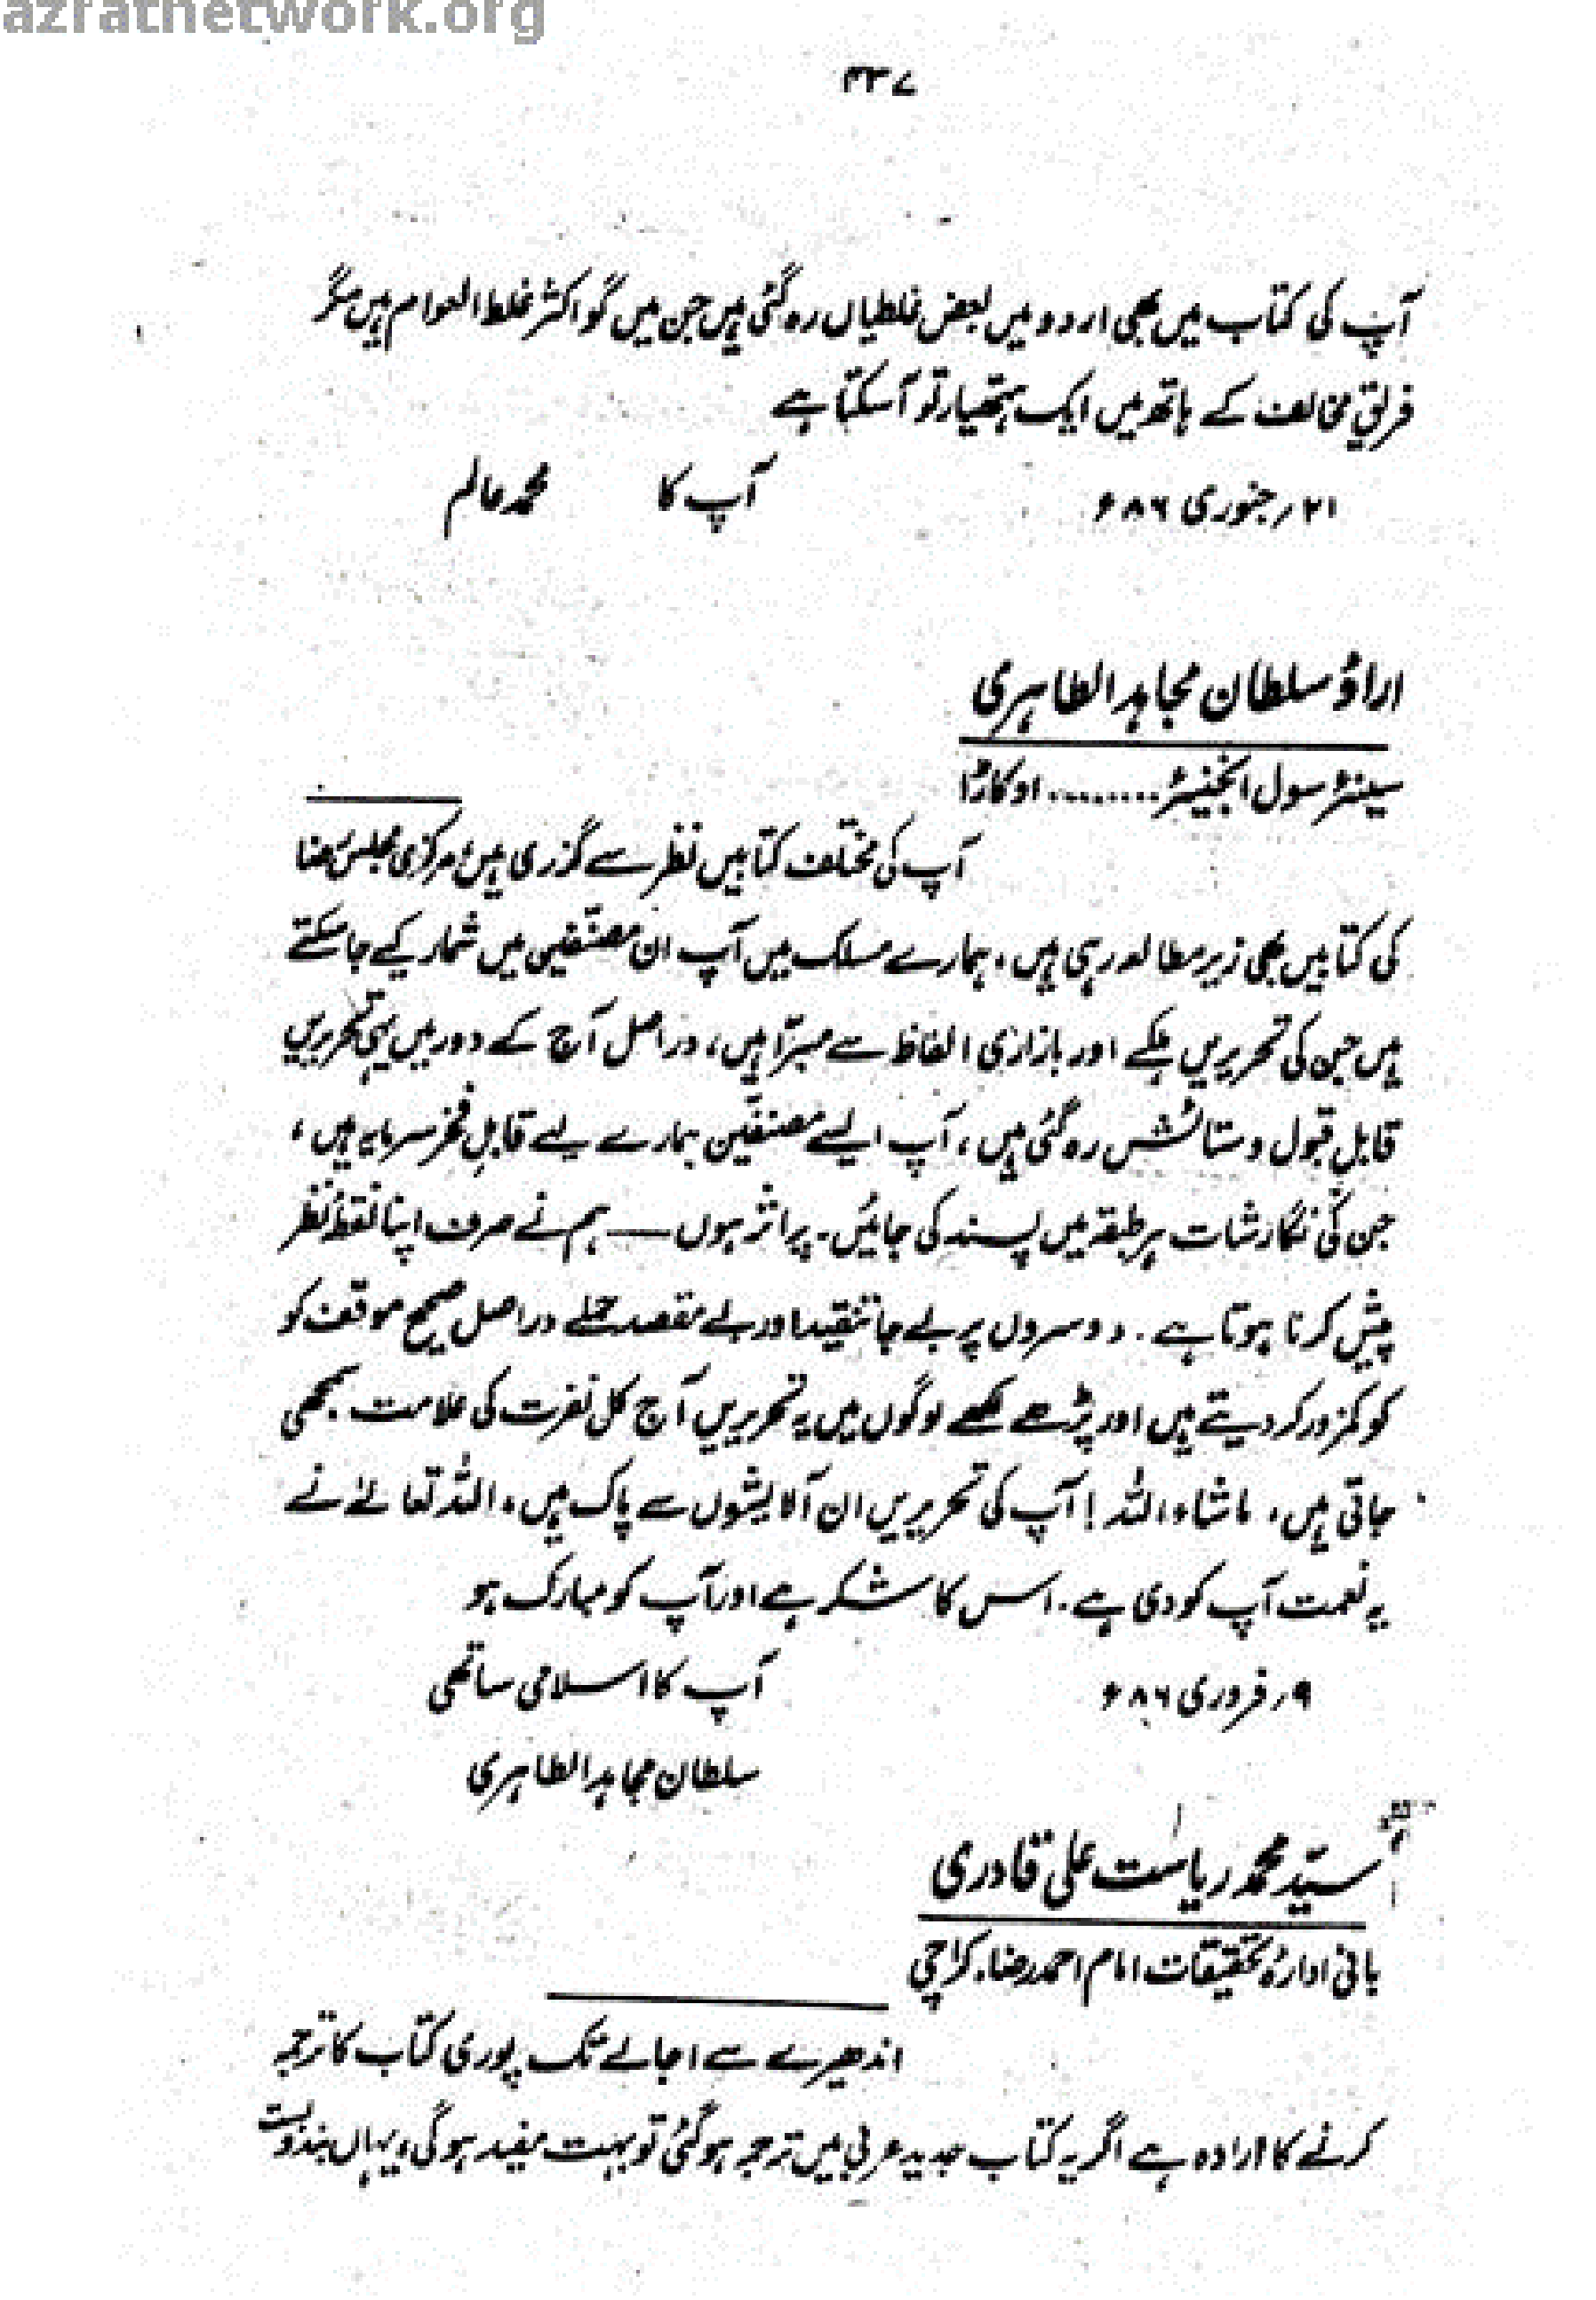 azratnetwork.org
۳۳۷
آپ کی کتاب میں بھی اردو میں بعض غلطیاں رہ گئی ہیں جن میں گو اکثر غلط العوام ہیں مگر
فریقِ مخالف کے ہاتھ میں ایک ہتھیار تو آسکتا ہے
۲۱؍جنوری ۸۶ء آپ کا محمد عالم
اراؤ سلطان مجاہد الطاہری
سینئر سول انجینئر ......... اوکاڑا
آپ کی مختلف کتابیں نظر سے گزری ہیں، مرکزی مجلس رضا
کی کتابیں بھی زیر مطالعہ رہی ہیں، ہمارے مسلک میں آپ ان مصنّفین میں شمار کیے جاسکتے
ہیں جن کی تحریریں ہلکے اور بازاری الفاظ سے مبرّا ہیں، دراصل آج کے دور میں یہی تحریریں
قابلِ قبول و ستائش رہ گئی ہیں، آپ ایسے مصنفّین ہمارے لیے قابلِ فخر سرمایہ ہیں،
جن کی نگارشات ہر طبقہ میں پسند کی جائیں۔ پر اثر ہوں ــــ ہم نے صرف اپنا نقطۂ نظر
پیش کرنا ہوتا ہے۔ دوسروں پر بے جا تنقید اور بے مقصد حملے دراصل صحیح موقف کو
کو کمزور کر دیتے ہیں اور پڑھے لکھے لوگوں میں یہ تحریریں آج کل نفرت کی علامت سمجھی
جاتی ہیں، ماشاء اللہ! آپ کی تحریریں ان آلایشوں سے پاک ہیں، اللہ تعالےٰ نے
یہ نعمت آپ کو دی ہے۔ اس کا شکر ہے اور آپ کو مبارک ہو
۹؍فروری ۸۶ء آپ کا اسلامی ساتھی
سلطان مجاہد الطاہری
سیّد محمد ریاست علی قادری
بانی ادارۂ تحقیقات امام احمد رضا، کراچی
اندھیرے سے اجالے تک پوری کتاب کا ترجمہ
کرنے کا ارادہ ہے اگر یہ کتاب جدید عربی میں ترجمہ ہو گئی تو بہت مفید ہو گی، یہاں بندوبست